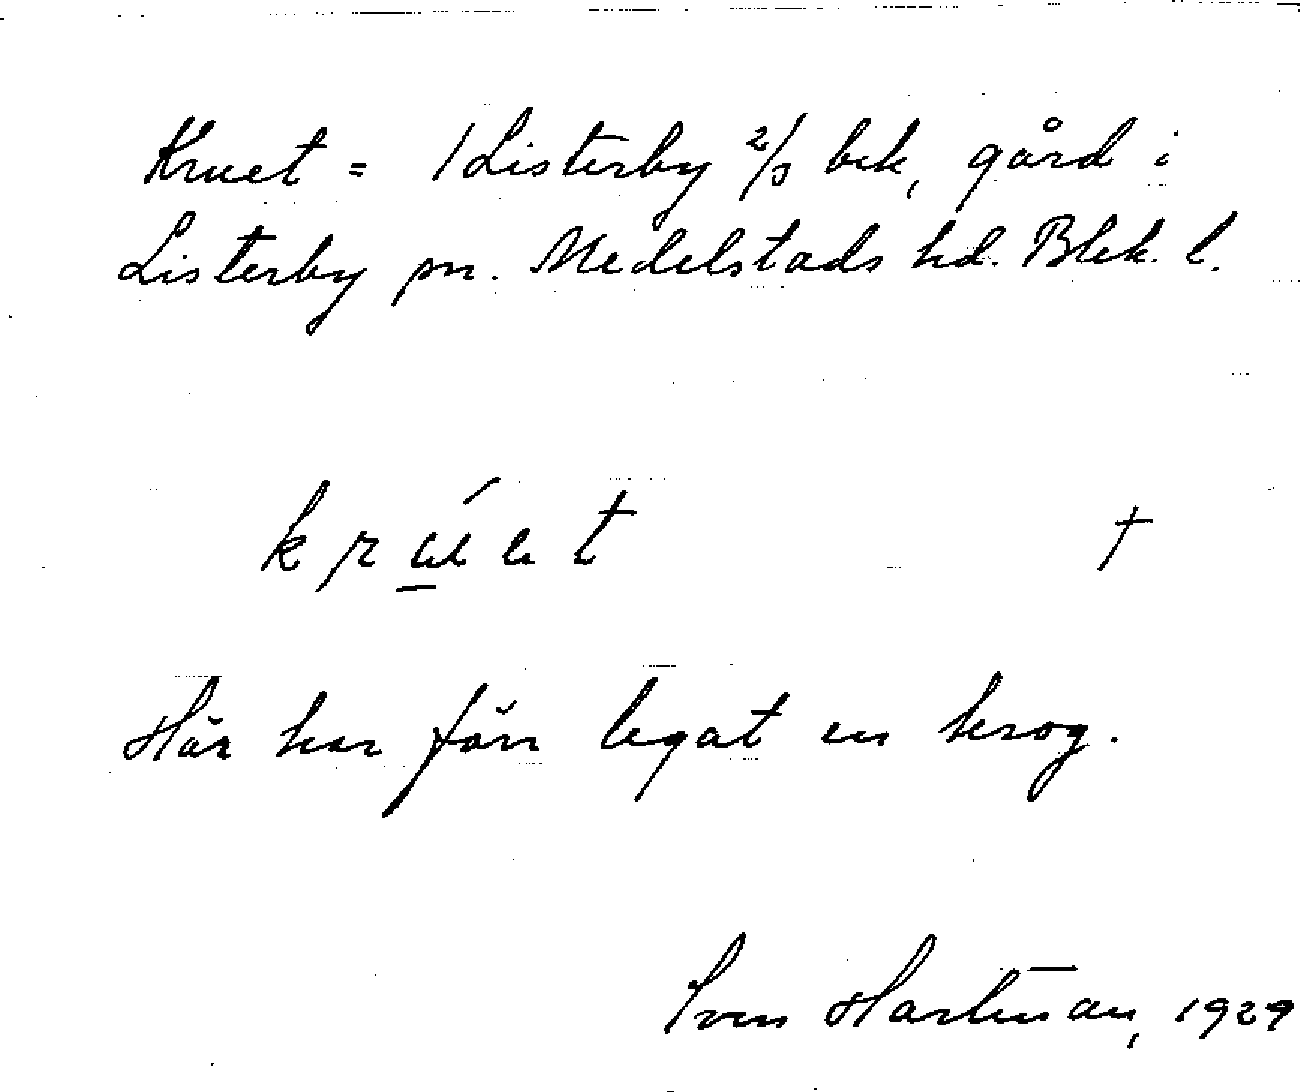 Kruet = 1 Listerby 2/3 bek, gård i
Listerby sn. Medelstads hd. Blek. l.
krúet †
Här har förr legat en krog.
Sven Hartman, 1929